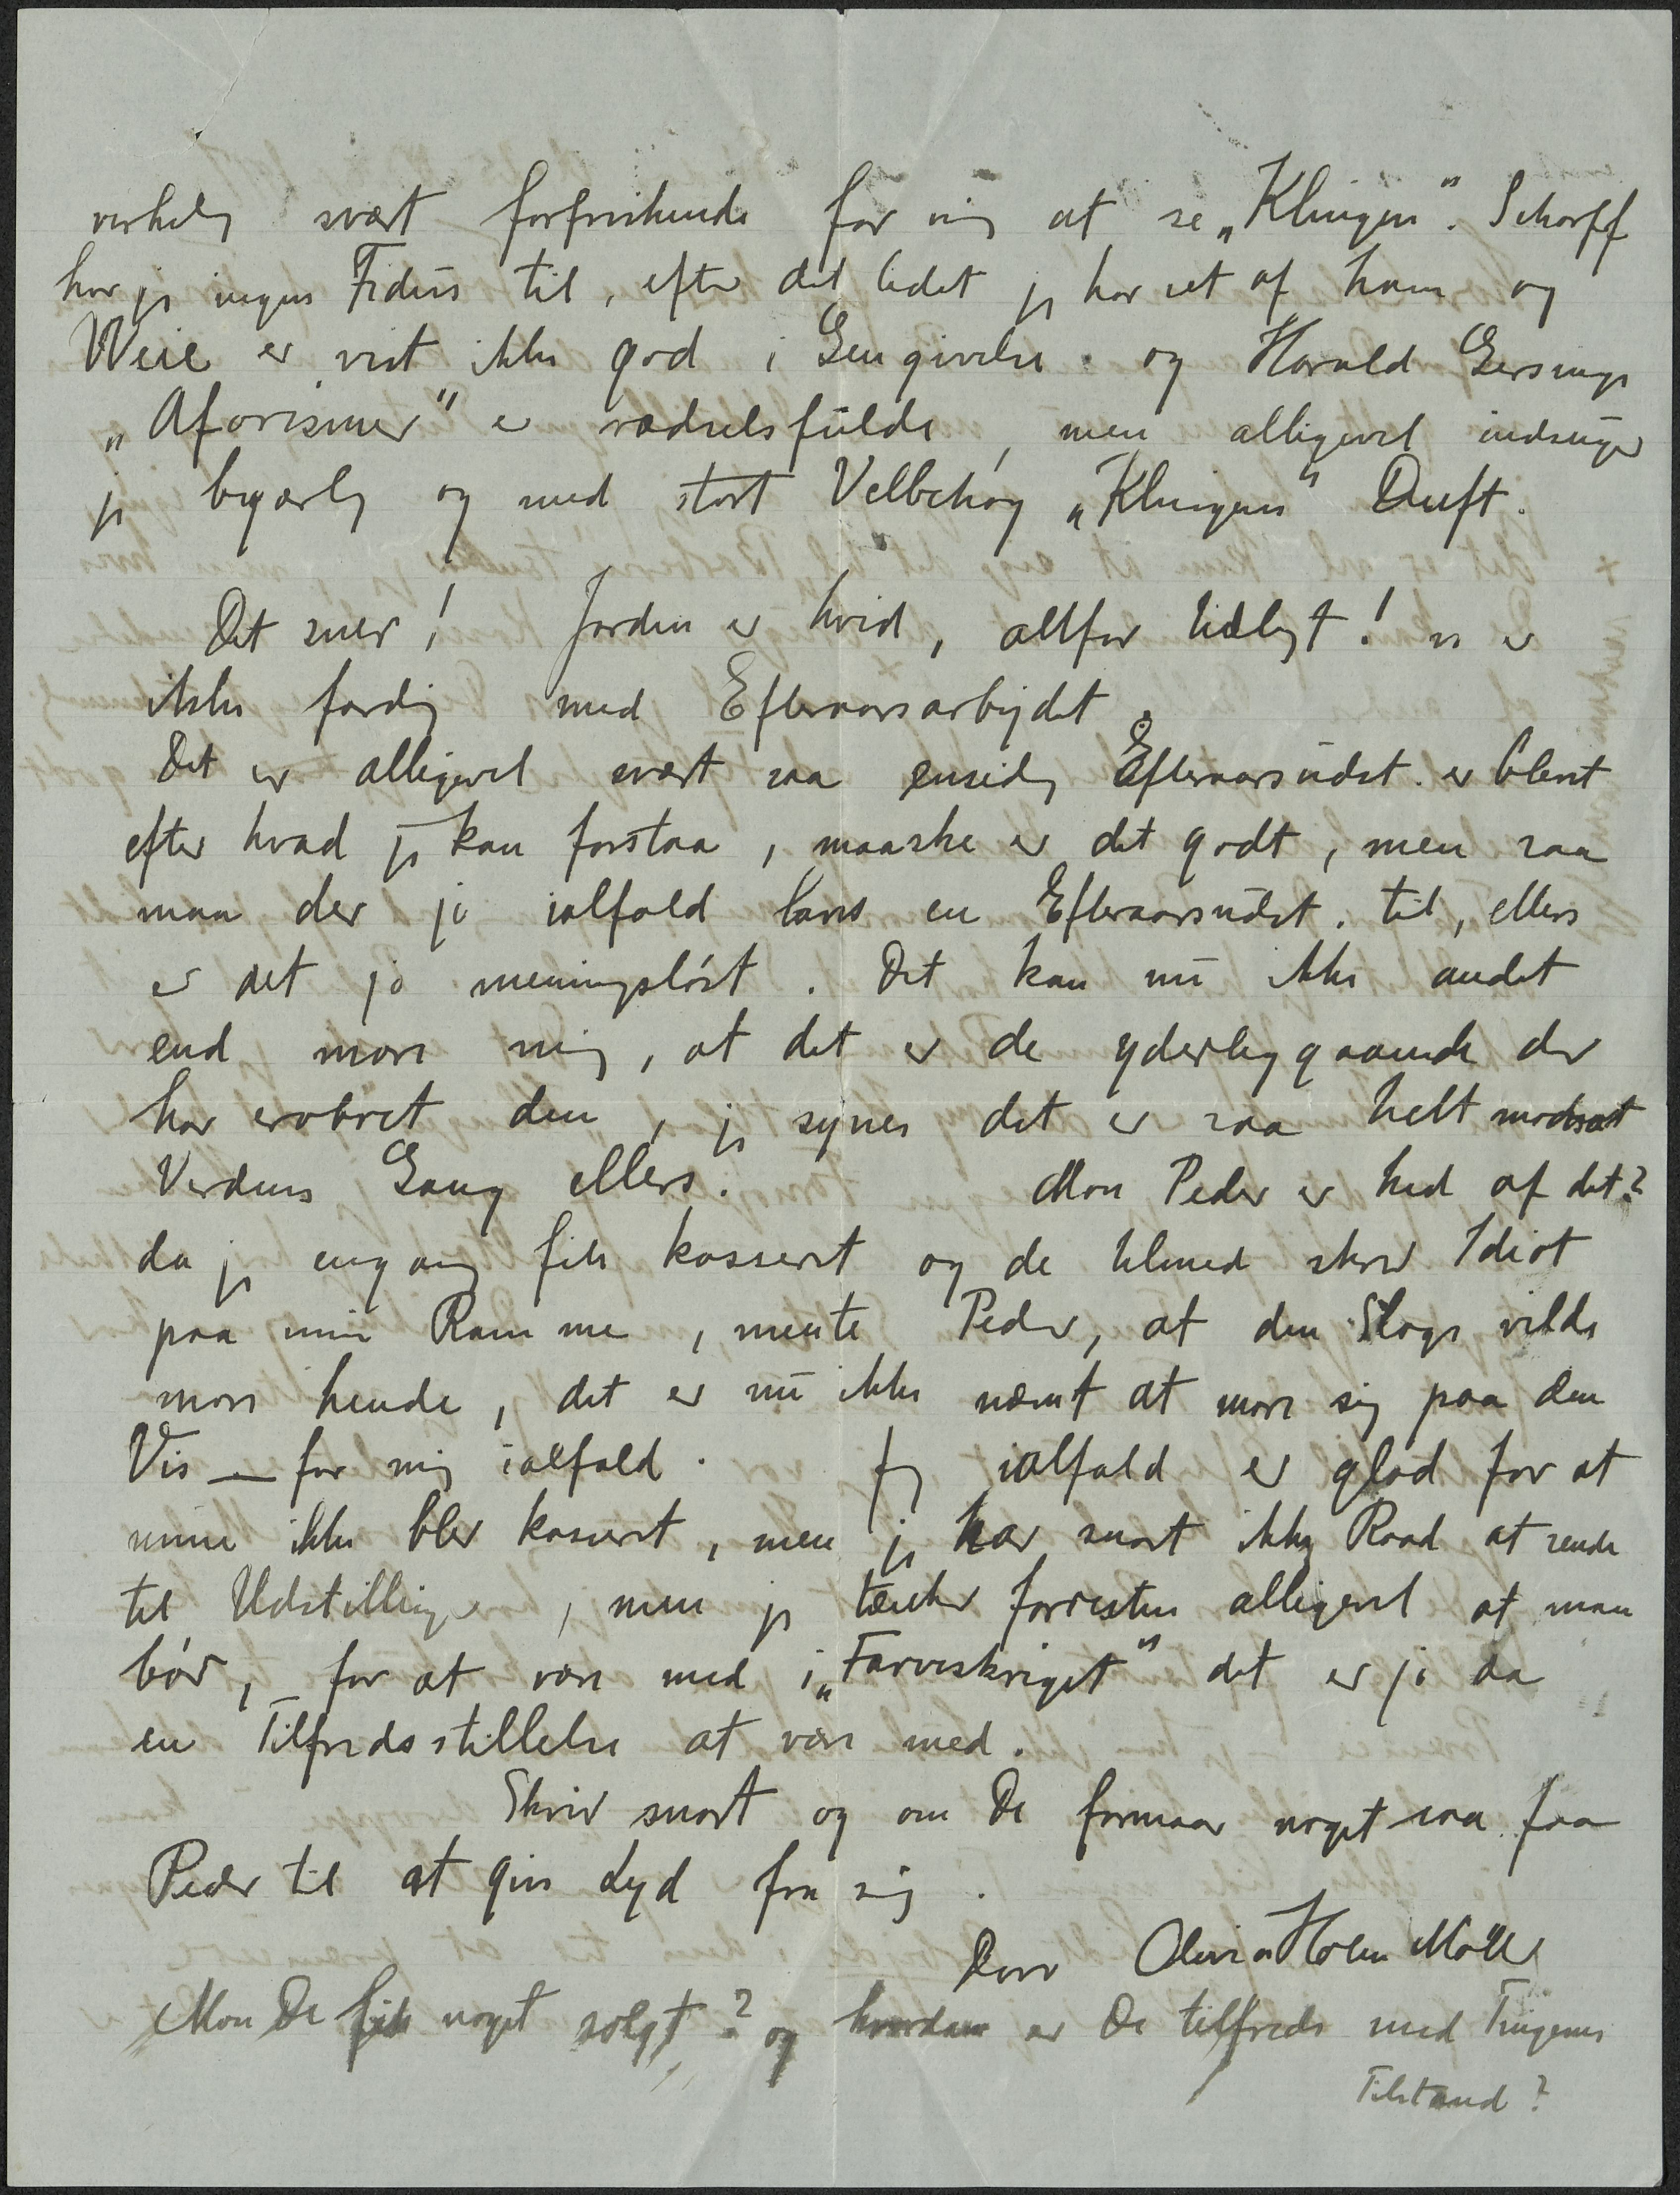 virkelig svært forfriskende for mig at se „Klingen". Scharff
har jeg ingen Fidus til, efter det lidet jeg har set af ham og
Weie er vist ikke god i Gengivelse. og Harald Giersings
„Aforismer" er rædselsfulde, men alligevel indsuger
jeg begærlig og med stort Velbehag „Klingens" Duft.
Det sner! Jorden er hvid, altfor tidligt! vi er
ikke færdig med Efteraarsarbejdet.
Det er alligevel svært saa ensidig Efteraarsudst. er blevet
efter hvad jeg kan forstaa, maaske er det godt, men saa
maa der jo ialfald laves en Efteraarsudst. til, ellers
er det jo meningsløst. Det kan nu ikke andet
end more mig, at det er de yderliggaaende der
har erobret den, jeg synes det er saa helt modsat
Verdens Gang ellers. Mon Peder er ked af det?
da jeg engang fik kasseret og de tilmed skrev Idiot
paa min Ramme, mente Peder, at den Slags vilde
more hende, det er nu ikke nemt at more sig paa den
Vis – for mig ialfald. Jeg ialfald er glad for at
mine ikke blev kasseret, men jeg har snart ikke Raad at sende
til Udstillinger, men jeg tænker forresten alligevel at man
bør, for at være med i „Farveskriget" det er jo da
en Tilfredsstillelse at være med.
Skriv snart og om De formaar noget saa faa
Peder til at give Lyd fra sig.
Deres Olivia Holm Møller
Mon De fik noget solgt? og hvordan er De tilfreds med Tingenes
Tilstand?